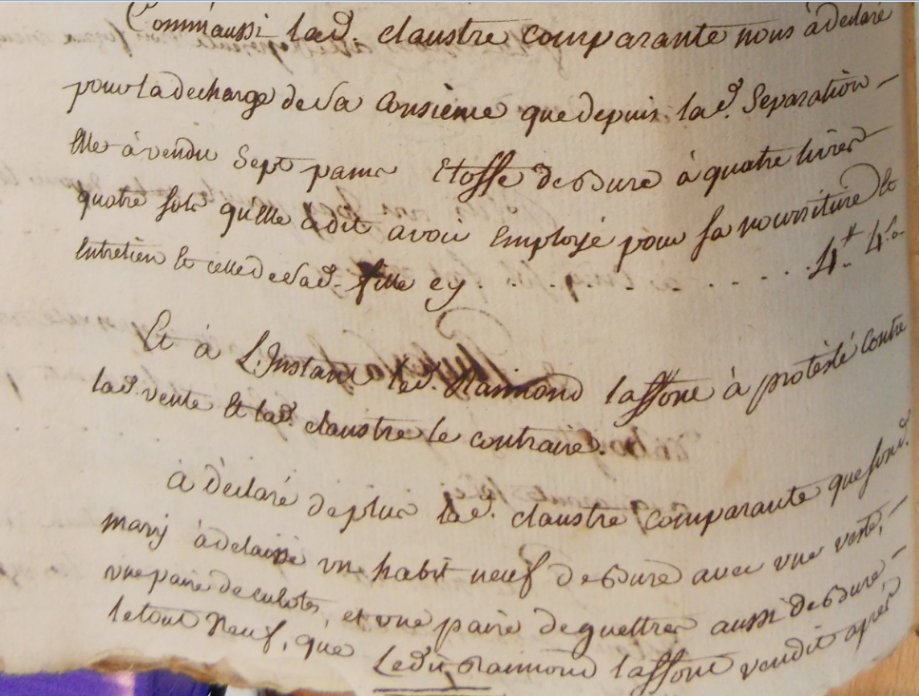 Comm'aussi lad. claustre comparante nous à declaré
pour la decharge de sa Consiéme que depuis lad. Separation
Elle à vendu Sept pams Etoffe de Bure à quatre livres
quatre sols qu'elle à dit avoir Employé pour sa nourriture Et
Entretien Et celle de sad. fille cy . . . . . . . . 4lt 4s
Et à L'Instant led. Raimond laffone à protesté contre
lad. vente Et lad. claustre le contraire.
à declaré de plus lad. claustre comparante que sond.
mary à delaissé vn habit neuf de Bure avec vne veste,
vne paire de culotes, et vne paire de guettres aussi de Bure
le tout Neuf, que Ledit Raimond laffont vendit après